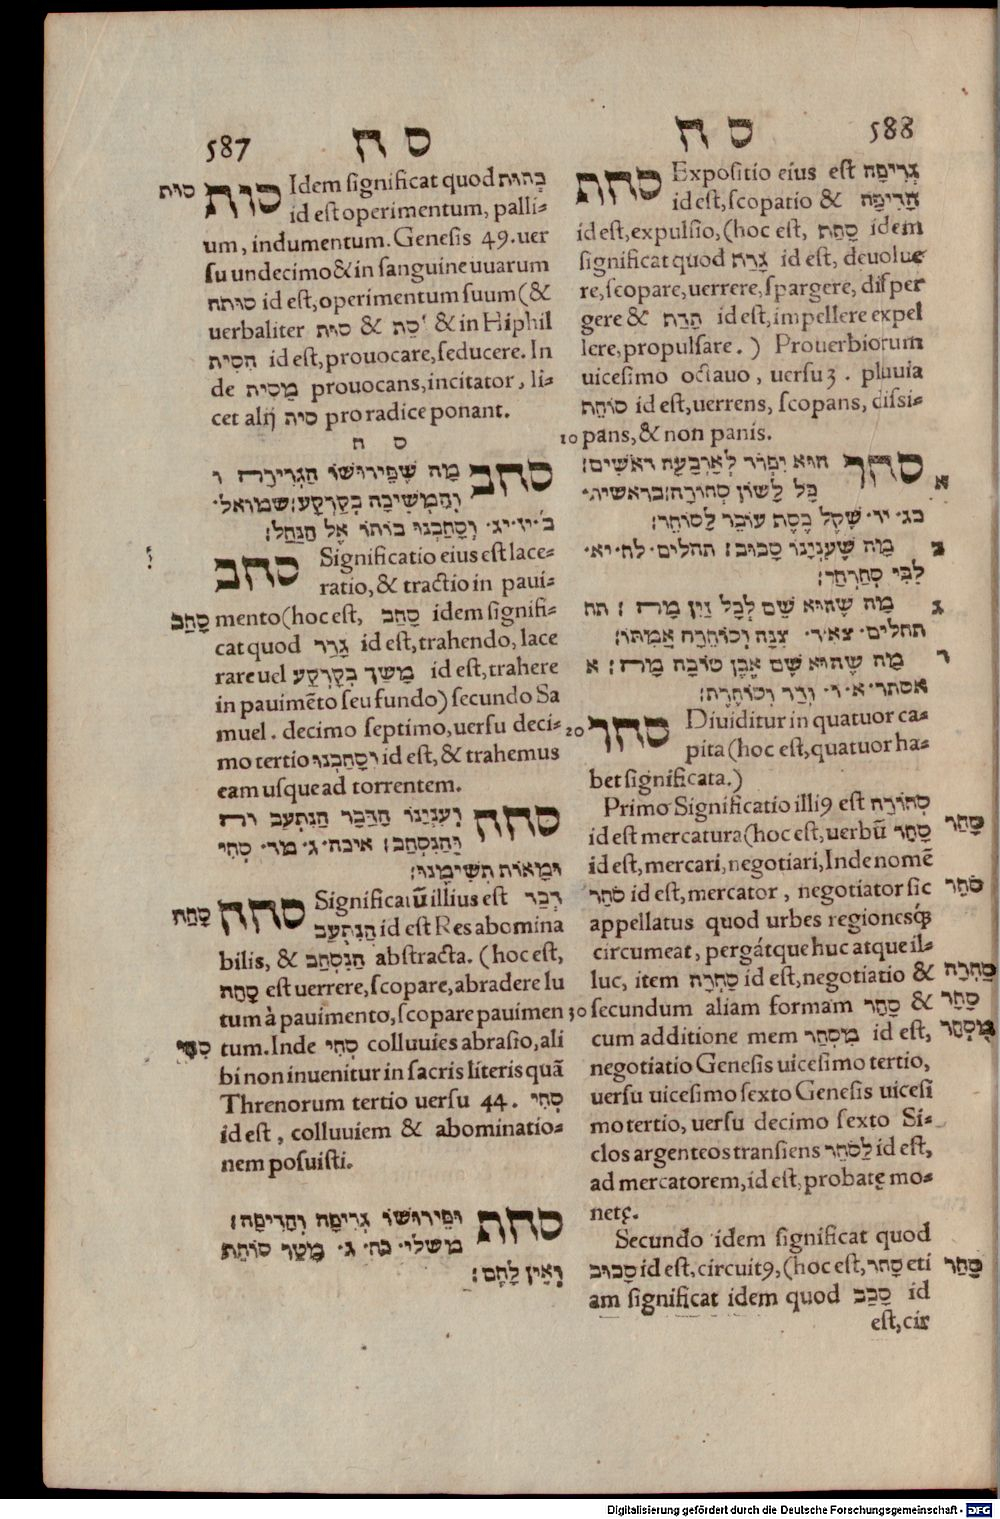 587 ס ח
סות
סות Idem significat quod כסות
id est operimentum, palli-
um, indumentum. Genesis 49. uer
su undecimo & in sanguine uuarum
סותה id est, operimentum suum (&
uerbaliter סות & & in Hiphil
הסית id est, prouocare, seducere. In
de מסית prouocans, incitator, li-
cet alij סית pro radice ponant.
ס ח
סחב מה שפירושו הגרירה ו
והמשיכה בקרקע: שמואל.
ב׳. יז. יג. וסחבנו אותו אל הנחל:
סחב Significatio eius est lace-
ratio, & tractio in paui-
סחב
mento (hoc est, סחב idem signifi-
cat quod גרר id est, trahendo, lace
rare uel משך בקרקע id est, trahere
in pauimẽto seu fundo) secundo Sa
muel. decimo septimo, uersu deci-
mo tertio וסחבנו id est, & trahemus
eam usque ad torrentem.
סחה וענינו הדבר הנתעב וה
והנסחב: איכה. ג. מד. סחי
ומאוס תשימנו:
סחה
סחה Significatũ illius est דבר
הנתעב id est Res abomina
bilis, & הנסחב abstracta. (hoc est,
סחה est uerrere, scopare, abradere lu
tum à pauimento, scopare pauimen
סחי
tum. Inde סחי colluuies abrasio, ali
bi non inuenitur in sacris literis quã
Threnorum tertio uersu 44. סחי
id est, colluuiem & abominatio-
nem posuisti.
סחת ופירושו גריפה וחריפה:
משלי. כח. ג. מטר סוחת
ואין לחם:
ס ח 588
סחת Expositio eius est גריפה
id est, scopatio & חריפה
id est, expulsio, (hoc est, סחת idem
significat quod גרה id est, deuolue
re, scopare, uerrere, spargere, disper
gere & הדח id est, impellere expel
lere, propulsare.) Prouerbiorum
uicesimo octauo, uersu 3. pluuia
סוחת id est, uerrens, scopans, dissi-
10 pans, & non panis.
סחר הוא יפרד לארבעה ראשים:
א
כל לשון סחורה: בראשית.
כג. יו. שקל כסף עובר לסוחר:
ב
מה שענינו סבוב: תהלים. לח. יא.
לבי סחרחר:
ג
מה שהוא שם לכל זין מה: תה
תהלים. צא. ד. צנה וסוחרה אמתו:
ד
מה שהוא שם אבן טובה מה: א
אסתר. א. ו. ודר וסוחרת:
20 סחר Diuiditur in quatuor ca-
pita (hoc est, quatuor ha-
bet significata.)
Primo Significatio illi9 est סחורה
סחר
id est mercatura (hoc est, uerbũ סחר
id est, mercari, negotiari, Inde nomẽ
סחר
סחר id est, mercator, negotiator sic
appellatus quod urbes regionesq́;
circumeat, pergátque huc atque il-
סחרה
luc, item סחרה id est, negotiatio &
סחר
30 secundum aliam formam סחר &
מסחר
cum additione mem מסחר id est,
negotiatio Genesis uicesimo tertio,
uersu uicesimo sexto Genesis uicesi
mo tertio, uersu decimo sexto Si-
clos argenteos transiens לסחר id est,
ad mercatorem, id est, probatę mo-
netę.
Secundo idem significat quod
סחר
סבוב id est, circuit9, (hoc est, סחר eti
am significat idem quod סבב id
est, cir
Digitalisierung gefördert durch die Deutsche Forschungsgemeinschaft - DFG